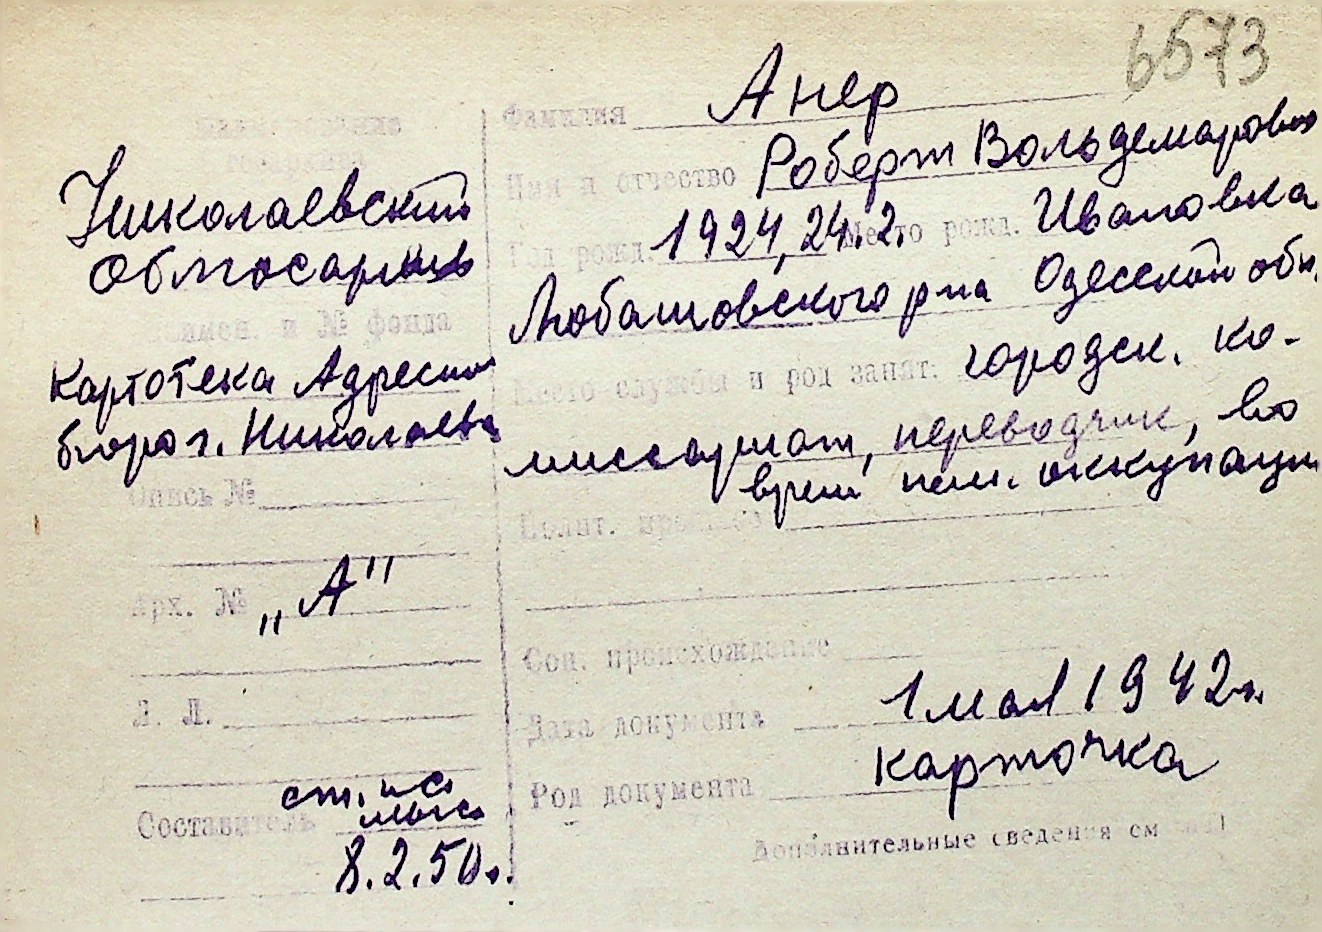 6573
Наименование
госархива
Николаевский
Облгосархив
Наимен. и № фонда
Картотека Адресного
бюро г. Николаева
Опись №
Арх. № „А"
Л. Л.
Составитель
8.2.50г.
Фамилия Анер
Имя и отчество Роберт Вольдемарович
Год рожд. 1924, 24.2. Место рожд. Ивановка
Любашовского р-на Одесской обл.
Место службы и род занят. городск. ко-
миссариат, переводчик, во
время нем. оккупации
Полит.
Соц. происхождение
Дата документа 1 мая 1942г.
Род документа карточка
Дополнительные сведения см